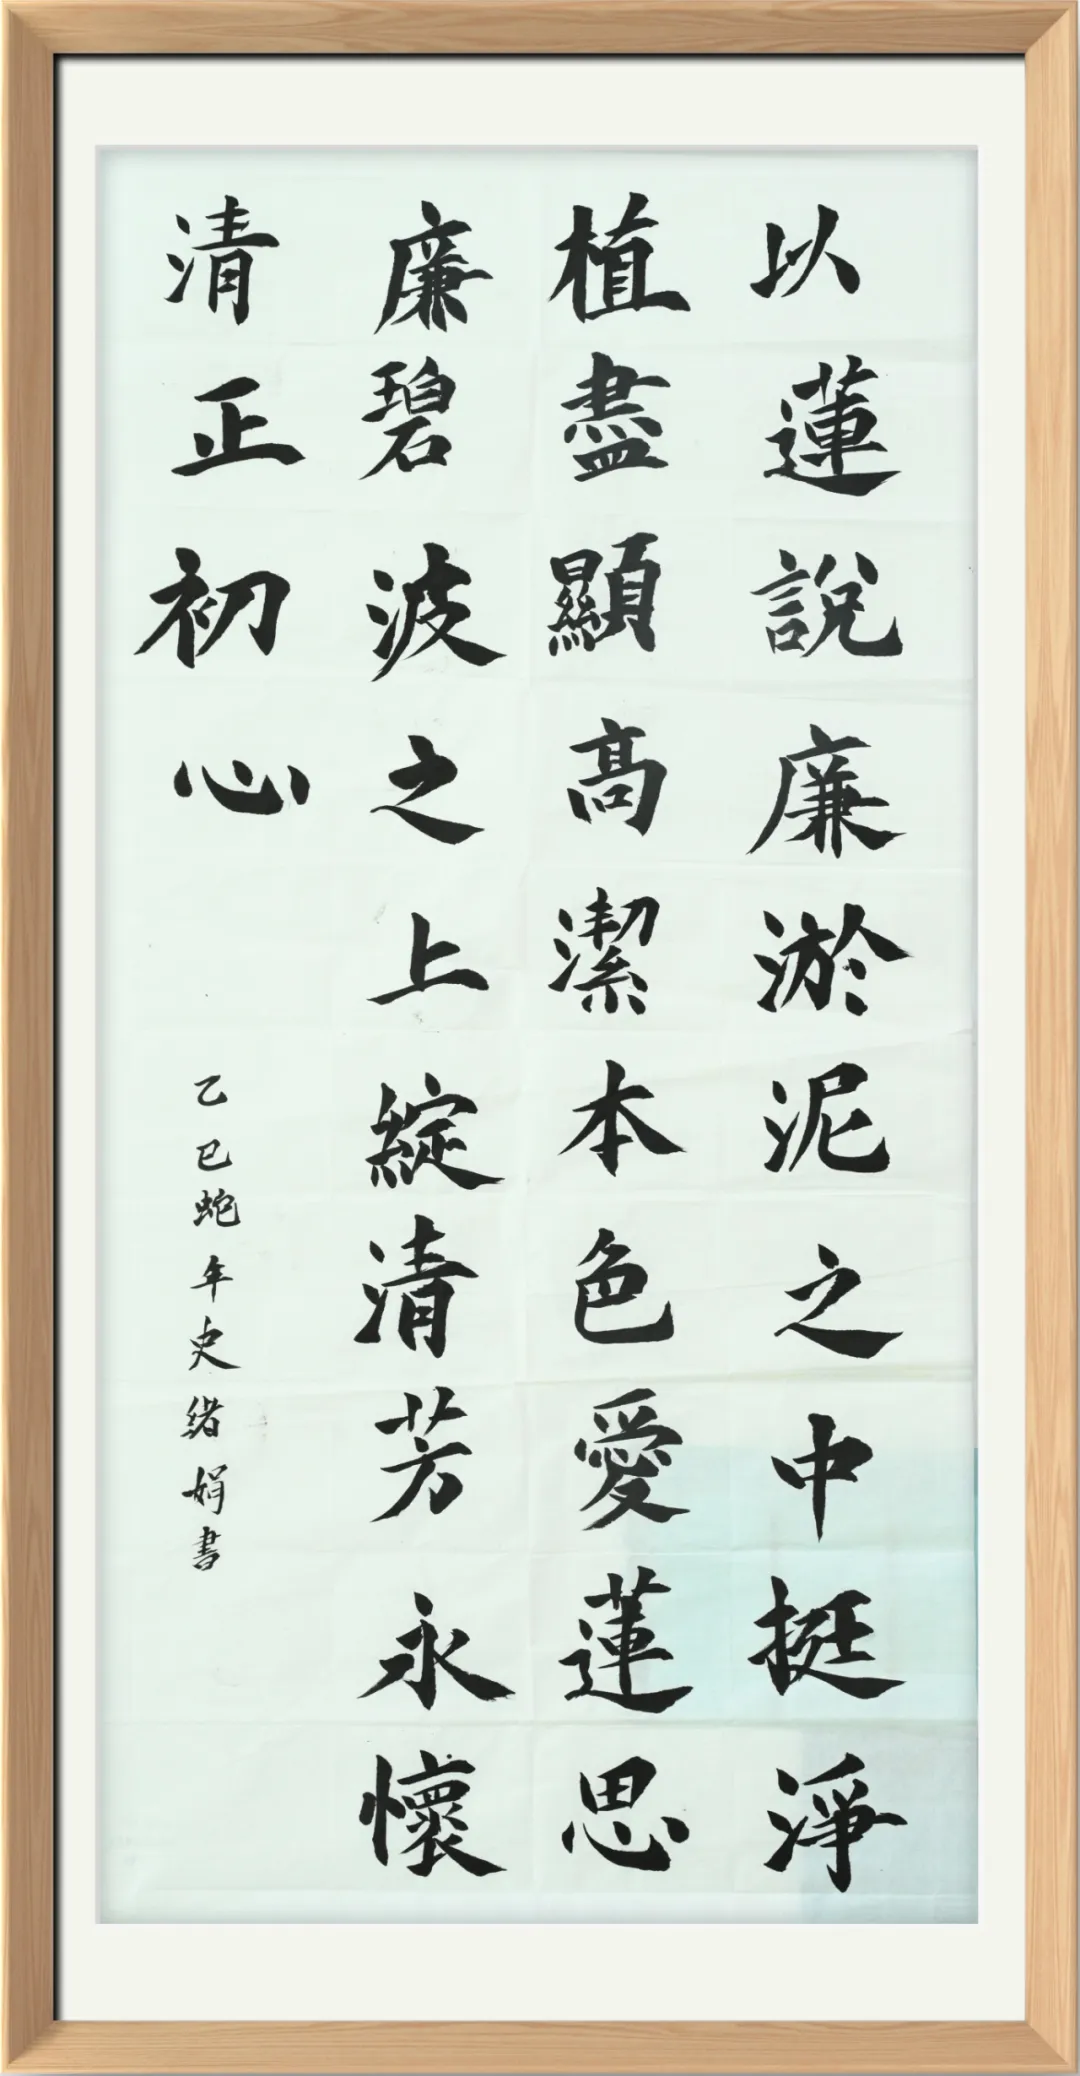 以蓮說廉淤泥之中挺淨
植盡顯高潔本色愛蓮思
廉碧波之上綻清芳永懷
清正初心
乙巳蛇年史緒娟書